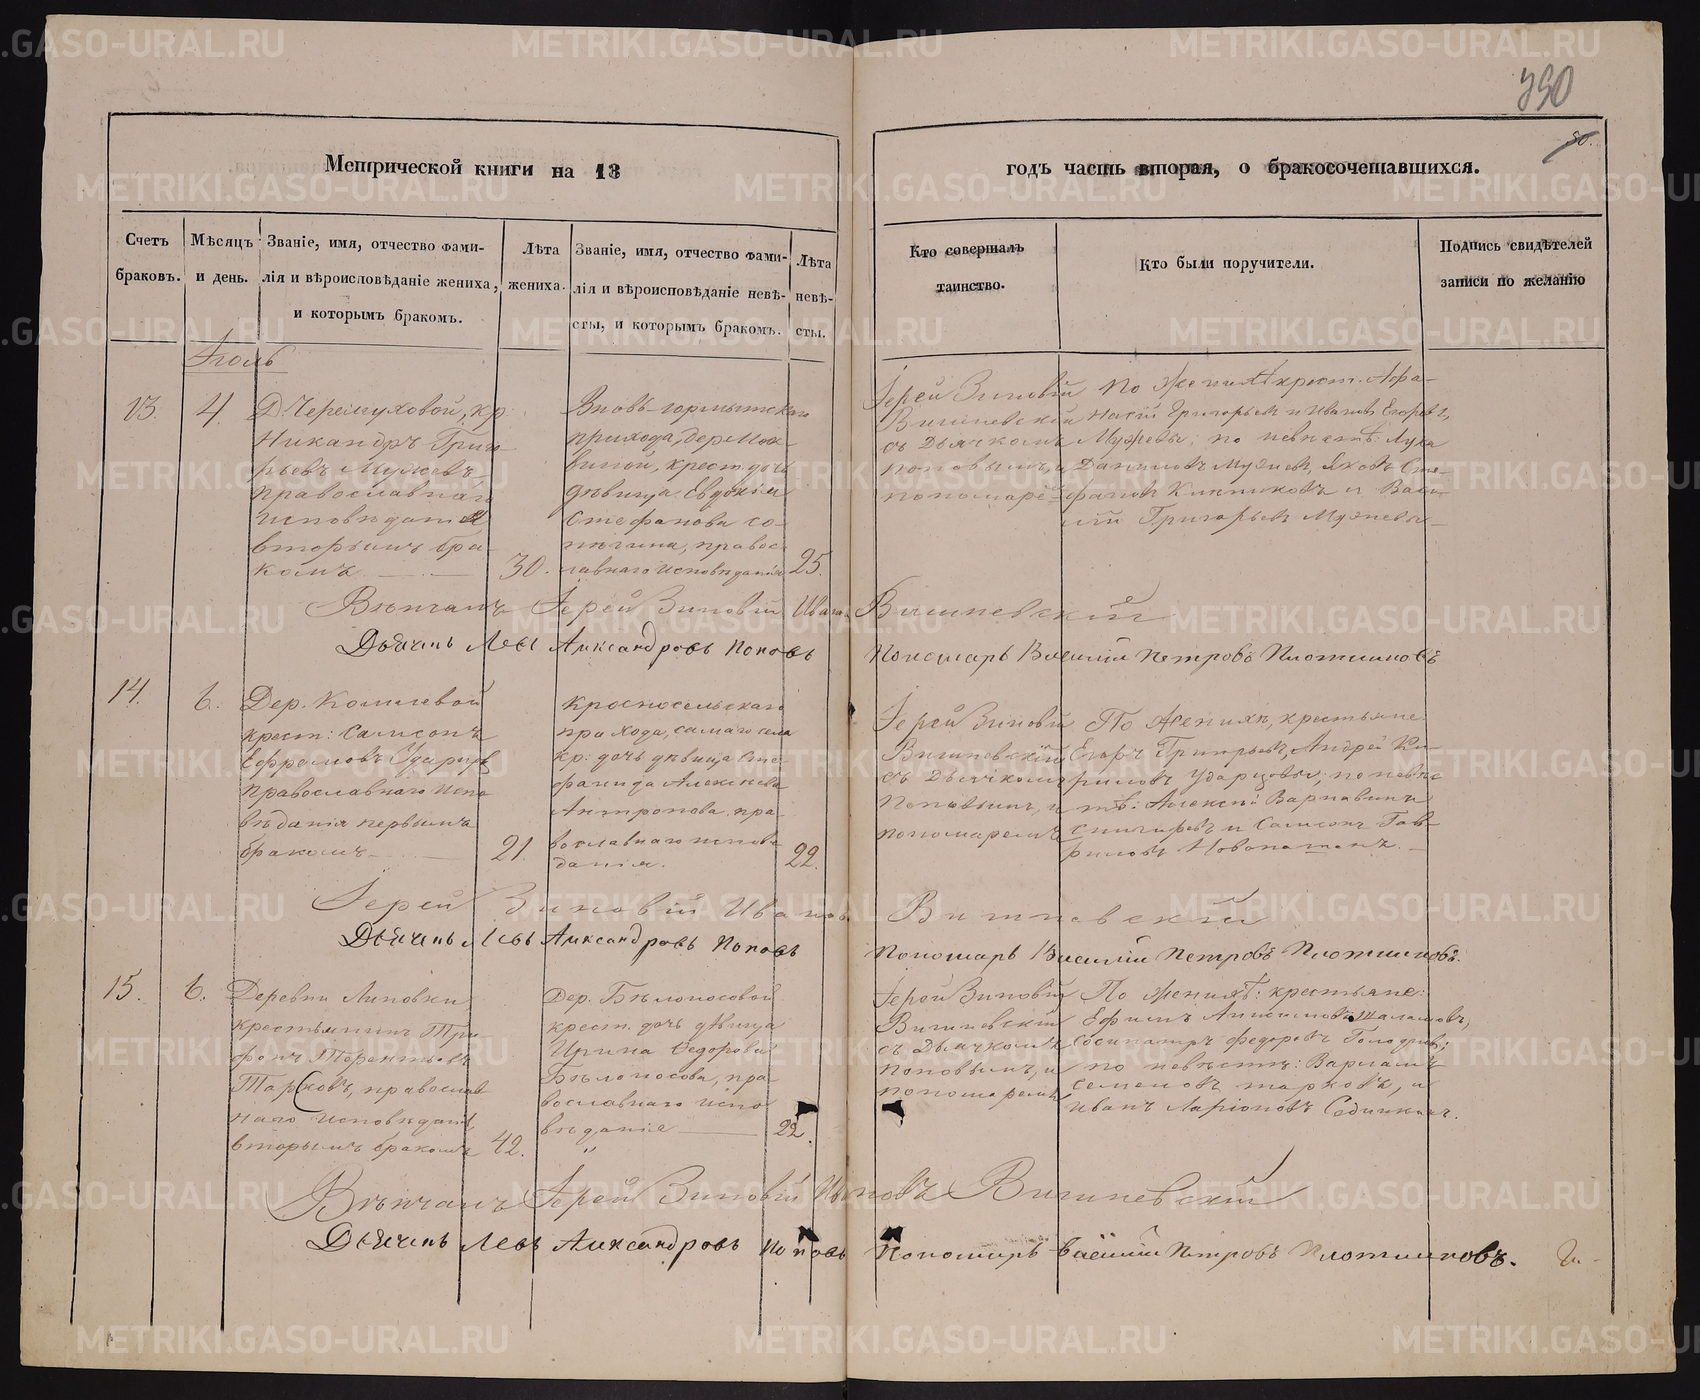 390
50.
Метрической книги на 18
годъ часть вторая, о бракосочетавшихся.
Счетъ браковъ.
Мѣсяцъ и день.
Званіе, имя, отчество фами-
лія и вѣроисповѣданіе жениха,
и которымъ бракомъ.
Лѣта жениха.
Званіе, имя, отчество фами-
лія и вѣроисповѣданіе невѣ-
сты, и которымъ бракомъ.
Лѣта невѣ-
сты.
Кто совершалъ
таинство.
Кто были поручители.
Подпись свидѣтелей
записи по желанію
Іюль
13.
4.
Д. Черемуховой, кр.
Никандръ Григо-
рьевъ Мужевъ,
православнаго
исповѣданія
вторымъ бра-
комъ
30.
прихода, дер.
крест. дочь
дѣвица Евдокія
Стефанова
правос-
лавнаго исповѣданія
25.
Іерей Зиновій
Вишневскій
съ Дьячкомъ
Поповымъ, и
пономарё-
По женихѣ крест. Афа-
насій Григорьевъ и Иванъ Егоровъ
Мужевы; по невѣстѣ: Лука
Даниловъ Мужевъ, Яковъ Сте-
фановъ и Васи-
лій Григорьевъ Мужевы
Вѣнчалъ Іерей Зиновій Ивановъ Вишневскій
Дьячекъ Левъ Александровъ Поповъ
Пономарь Василій Петровъ Плотниковъ
14.
6.
Дер.
крест: Самсонъ
Ефремовъ Ударцевъ
православнаго испо-
вѣданія первымъ
бракомъ
21.
Красносельскаго
прихода, самаго села
кр: дочь дѣвица Сте-
фанида Алексѣева
Антропова, пра-
вославнаго исповѣ-
данія.
22.
Іерей Зиновій
Вишневскій
съ Дьячкомъ
Поповымъ, и
пономаремъ
По женихѣ, крестьяне
Егоръ Григорьевъ, Андрей Ки-
риловъ Ударцовы; по невѣс-
тѣ: Алексѣй Варнавинъ
Снигиревъ и Самсонъ Гав-
риловъ
Іерей Зиновій Ивановъ Вишневскій
Дьячекъ Левъ Александровъ Поповъ
Пономарь Василій Петровъ Плотниковъ.
15.
6.
Деревни Липовки
крестьянинъ Три-
фонъ Терентьевъ
Тарховъ, православ-
наго исповѣданія,
вторымъ бракомъ
42.
Дер. Бѣлоносовой
крест. дочь дѣвица
Ирина Ѳедорова
Бѣлоносова, пра-
вославнаго испо-
вѣданія
22.
Іерей Зиновій
Вишневскій
съ Дьячкомъ
Поповымъ, и
пономаремъ
По женихѣ: крестьяне:
Ефимъ
Сосипатръ Федоровъ
по невѣстѣ: Варлаамъ
Семеновъ Тарховъ, и
Иванъ Ларіоновъ
Вѣнчалъ Іерей Зиновій Ивановъ Вишневскій
Дьячекъ Левъ Александровъ Поповъ
Пономарь Василій Петровъ Плотниковъ.
METRIKI.GASO-URAL.RU